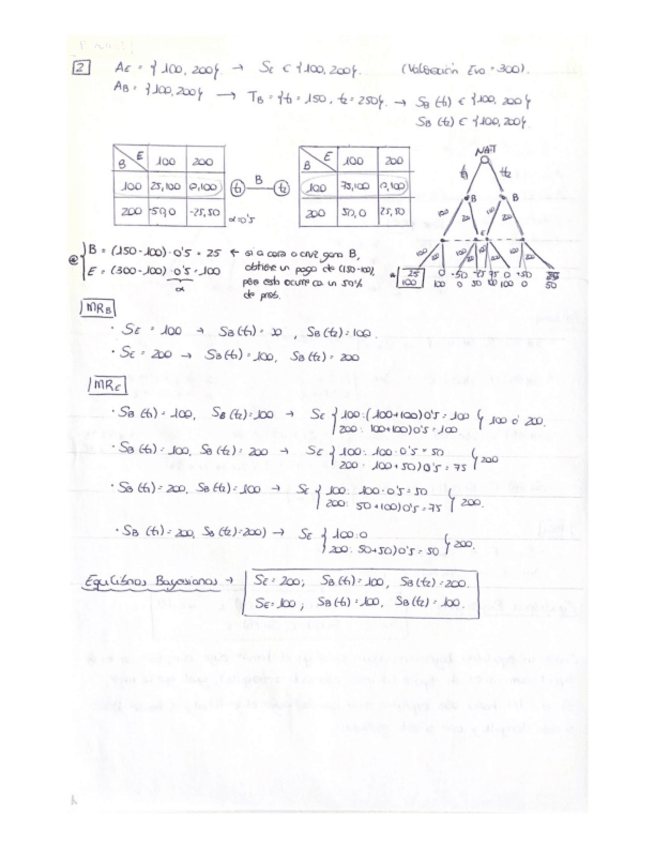 2 AE = {100, 200} → SE ∈ {100, 200}. (Valoración Eva = 300).
AB = {100, 200} → TB = {t1 = 150, t2 = 250}. → SB (t1) ∈ {100, 200}
SB (t2) ∈ {100, 200}
B E 100 200
100 25,100 0,100
200 -50,0 -25,50
t1 B t2
α=0'5
B E 100 200
100 75,100 0,100
200 50,0 25,50
NAT
t1 t2
B B
100 200 100 200
E
25 0 -50 -25 75 0 +50 25
100 100 0 50 100 100 0 50
B = (150-100)·0'5 = 25 ← si a cara o cruz gana B,
obtiene un pago de (150-100),
E = (300-100)·0'5 = 100
α
pero esto ocurre ca un 50%
de prob.
MRB
· SE = 100 → SB(t1) = 100, SB(t2) = 100.
· SE = 200 → SB(t1) = 100, SB(t2) = 200
MRE
· SB(t1) = 100, SB(t2) = 100 → SE { 100: (100+100)0'5 = 100 } 100 ó 200.
200: 100+100)0'5 = 100
· SB (t1) = 100, SB (t2) = 200 → SE { 100: 100·0'5 = 50 } 200
200: 100+50)0'5 = 75
· SB (t1) = 200, SB(t2) = 100 → SE { 100: 100·0'5 = 50 } 200.
200: 50+100)0'5 = 75
· SB (t1) = 200, SB (t2) = 200) → SE { 100: 0 } 200.
200: 50+50)0'5 = 50
Equilibrios Bayesianos → SE = 200; SB(t1) = 100, SB(t2) = 200.
SE = 100; SB(t1) = 100, SB(t2) = 100.